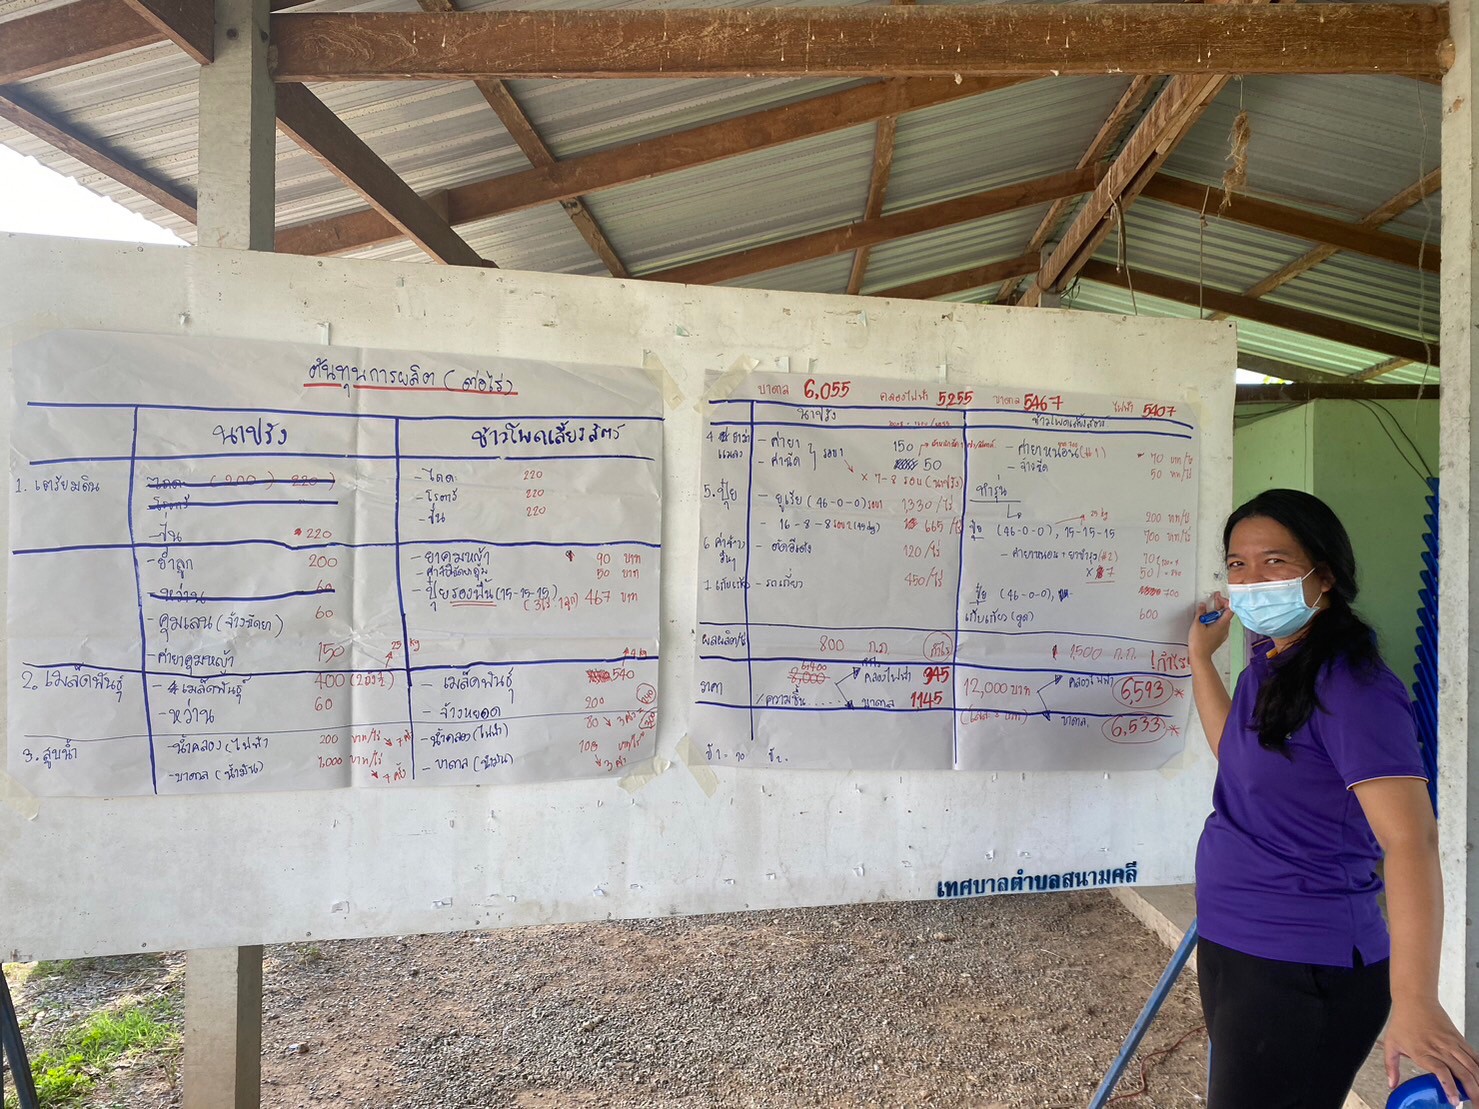 ต้นทุนการผลิต (ต่อไร่)
นาปรัง
ข้าวโพดเลี้ยงสัตว์
1. เตรียมดิน
- ไถดะ (200) 220
- โรตารี่
- ปั่น 220
- ไถดะ 220
- โรตารี่ 220
- ปั่น 220
- ย่ำลูก 200
- หว่าน 60
- คุมเลน (จ้างฉีดยา) 60
- ค่ายาคุมหญ้า 150
- ยาคุมหญ้า 90 บาท
50 บาท
- ปุ๋ยรองพื้น (15-15-15) 467 บาท
25 kg
2. เมล็ดพันธุ์
- เมล็ดพันธุ์ 400
- หว่าน 60
- เมล็ดพันธุ์ 540
- จ้างหยอด 200
3. สูบน้ำ
- น้ำคลอง (ไฟฟ้า) 200 บาท/ไร่
- บาดาล (น้ำมัน) 1,000 บาท/ไร่ 4 ครั้ง
- น้ำคลอง (ไฟฟ้า) 80 3 ครั้ง
- บาดาล (น้ำมัน) 3 ครั้ง
บาดาล 6,055 คลองไฟฟ้า 5255 บาดาล 5467 ไฟฟ้า 5407
นาปรัง
ข้าวโพดเลี้ยงสัตว์
- ค่ายา 150
- ค่าฉีด 50
× 7-8 รอบ (นาปรัง)
- ค่ายาหนอน (#1) 70 บาท/ไร่
- จ้างฉีด 50 บาท/ไร่
5. ปุ๋ย
- ยูเรีย (46-0-0) รอบ 1 1,330 /ไร่
- 16-8-8 รอบ 2 665 /ไร่
ทำรุ่น 200 บาท/ไร่
25 kg
ปุ๋ย (46-0-0), 15-15-15 700 บาท/ไร่
- ค่ายาหนอน + ยาบำรุง (#2) 70
50
6 ค่าจ้างอื่นๆ
120/ไร่
- รถเกี่ยว 450/ไร่
ปุ๋ย (46-0-0), 700
เก็บเกี่ยว 600
ผลผลิต/ไร่ 800 ก.ก. กำไร
1,500 ก.ก. กำไร
ราคา
6,400
8,000
คลองไฟฟ้า 945
ความชื้น .... บาดาล 1145
12,000 บาท
คลองไฟฟ้า 6,593 *
บาดาล 6,533 *
เทศบาลตำบลสนามคลี